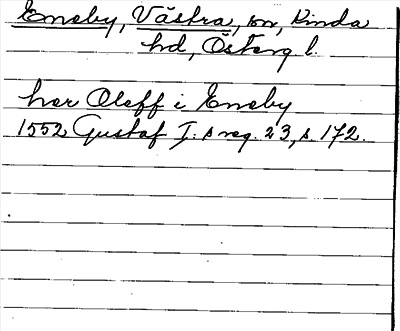 Eneby, Västra, sn, Kinda
hd, Österg l.
her Oleff i Eneby
1552 Gustaf I:s reg. 23, s. 172.